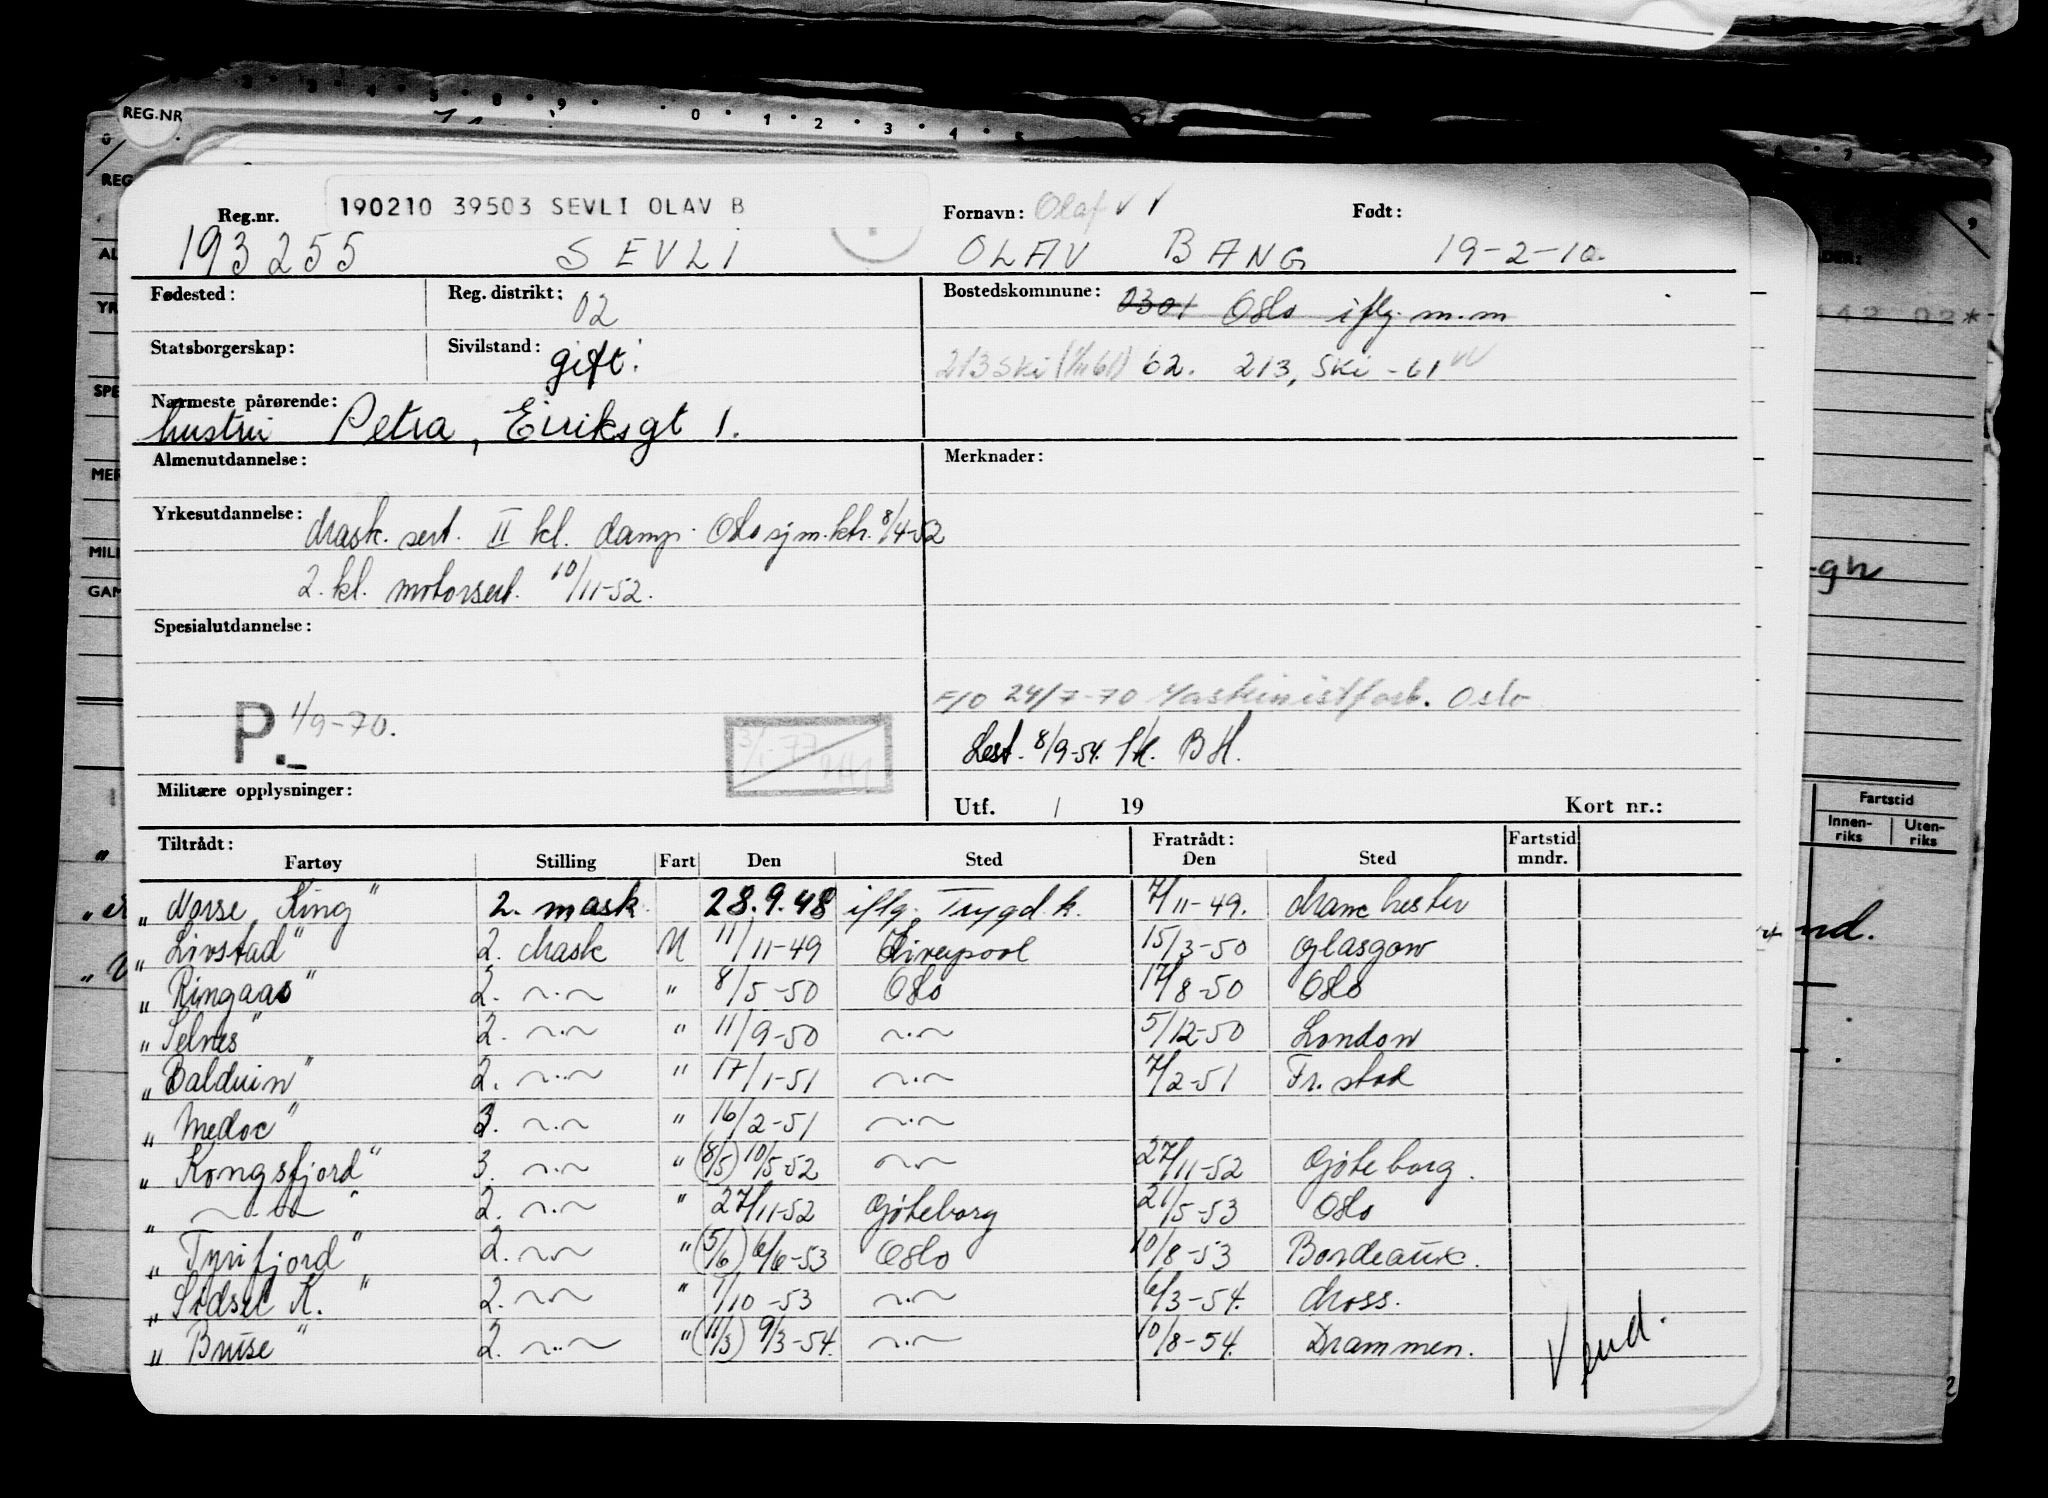 REG.NR
Reg.nr. 190210 39503 SEVLI OLAV B Fornavn: Olaf Født:
193255 SEVLI OLAV BANG 19-2-10.
Fødested: Reg. distrikt: 02 Bostedskommune: 0301 Oslo iflg. m.m
Statsborgerskap: Sivilstand: gift. 213 Ski 62. 213, Ski -61
Nærmeste pårørende: hustru Petra, Eiriksgt 1.
Almenutdannelse: Merknader:
Yrkesutdannelse: Mask. sert. II kl. damp. Oslo sjm.ktr. 8/4-52
2. kl. motorsert. 10/11-52.
Spesialutdannelse:
F/O 24/7-70 Maskinistforb. Oslo
P. 1/9-70.
3/1-77
Lest. 8/9-54. BH.
Militære opplysninger: Utf. / 19 Kort nr.:
Tiltrådt: Fratrådt: Fartstid
Fartøy Stilling Fart Den Sted Den Sted mndr.
„Norse King" 2. mask. 28.9.48 iflg. Trygd.k. 7/11-49. Manchester
„Livstad" 2. Mask M 11/11-49 Liverpool 15/3-50 Glasgow
„Ringaas" 2. ~.~ " 8/5-50 Oslo 17/8-50 Oslo
„Selnes" 2. ~.~ " 11/9-50 ~.~ 5/12-50 London
„Balduin" 2. ~.~ " 17/1-51 ~.~ 7/2-51 Fr.stad
„Medoc" ~.~ " 16/2-51 ~.~
„Kongsfjord" 3. ~.~ " (8/5) 10/5-52 ~.~ 27/11-52 Göteborg.
„ ~.~ " 2. ~.~ " 27/11-52 Göteborg 21/5-53 Oslo
„Tyrifjord" 2. ~.~ " (5/6) 6/6-53 Oslo 10/8-53 Bordeaux.
„Sidsel K." 2. ~.~ " 1/10-53 ~.~ 6/3-54. Moss.
„Bruse" 2. ~.~ " (11/3) 9/3-54. ~.~ 10/8-54. Drammen.
Vend.
Fartstid
Innen-riks Uten-riks